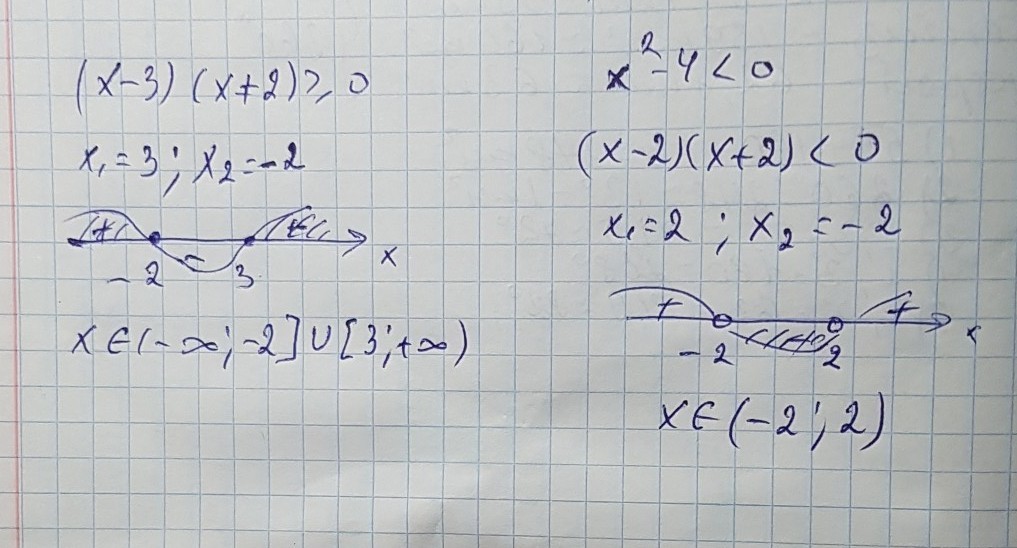 (x-3)(x+2)⩾0
x₁=3; x₂=-2
+ - + x
-2 3
x∈(-∞;-2]∪[3;+∞)
x²-4<0
(x-2)(x+2)<0
x₁=2; x₂=-2
+ + x
-2 2
x∈(-2;2)